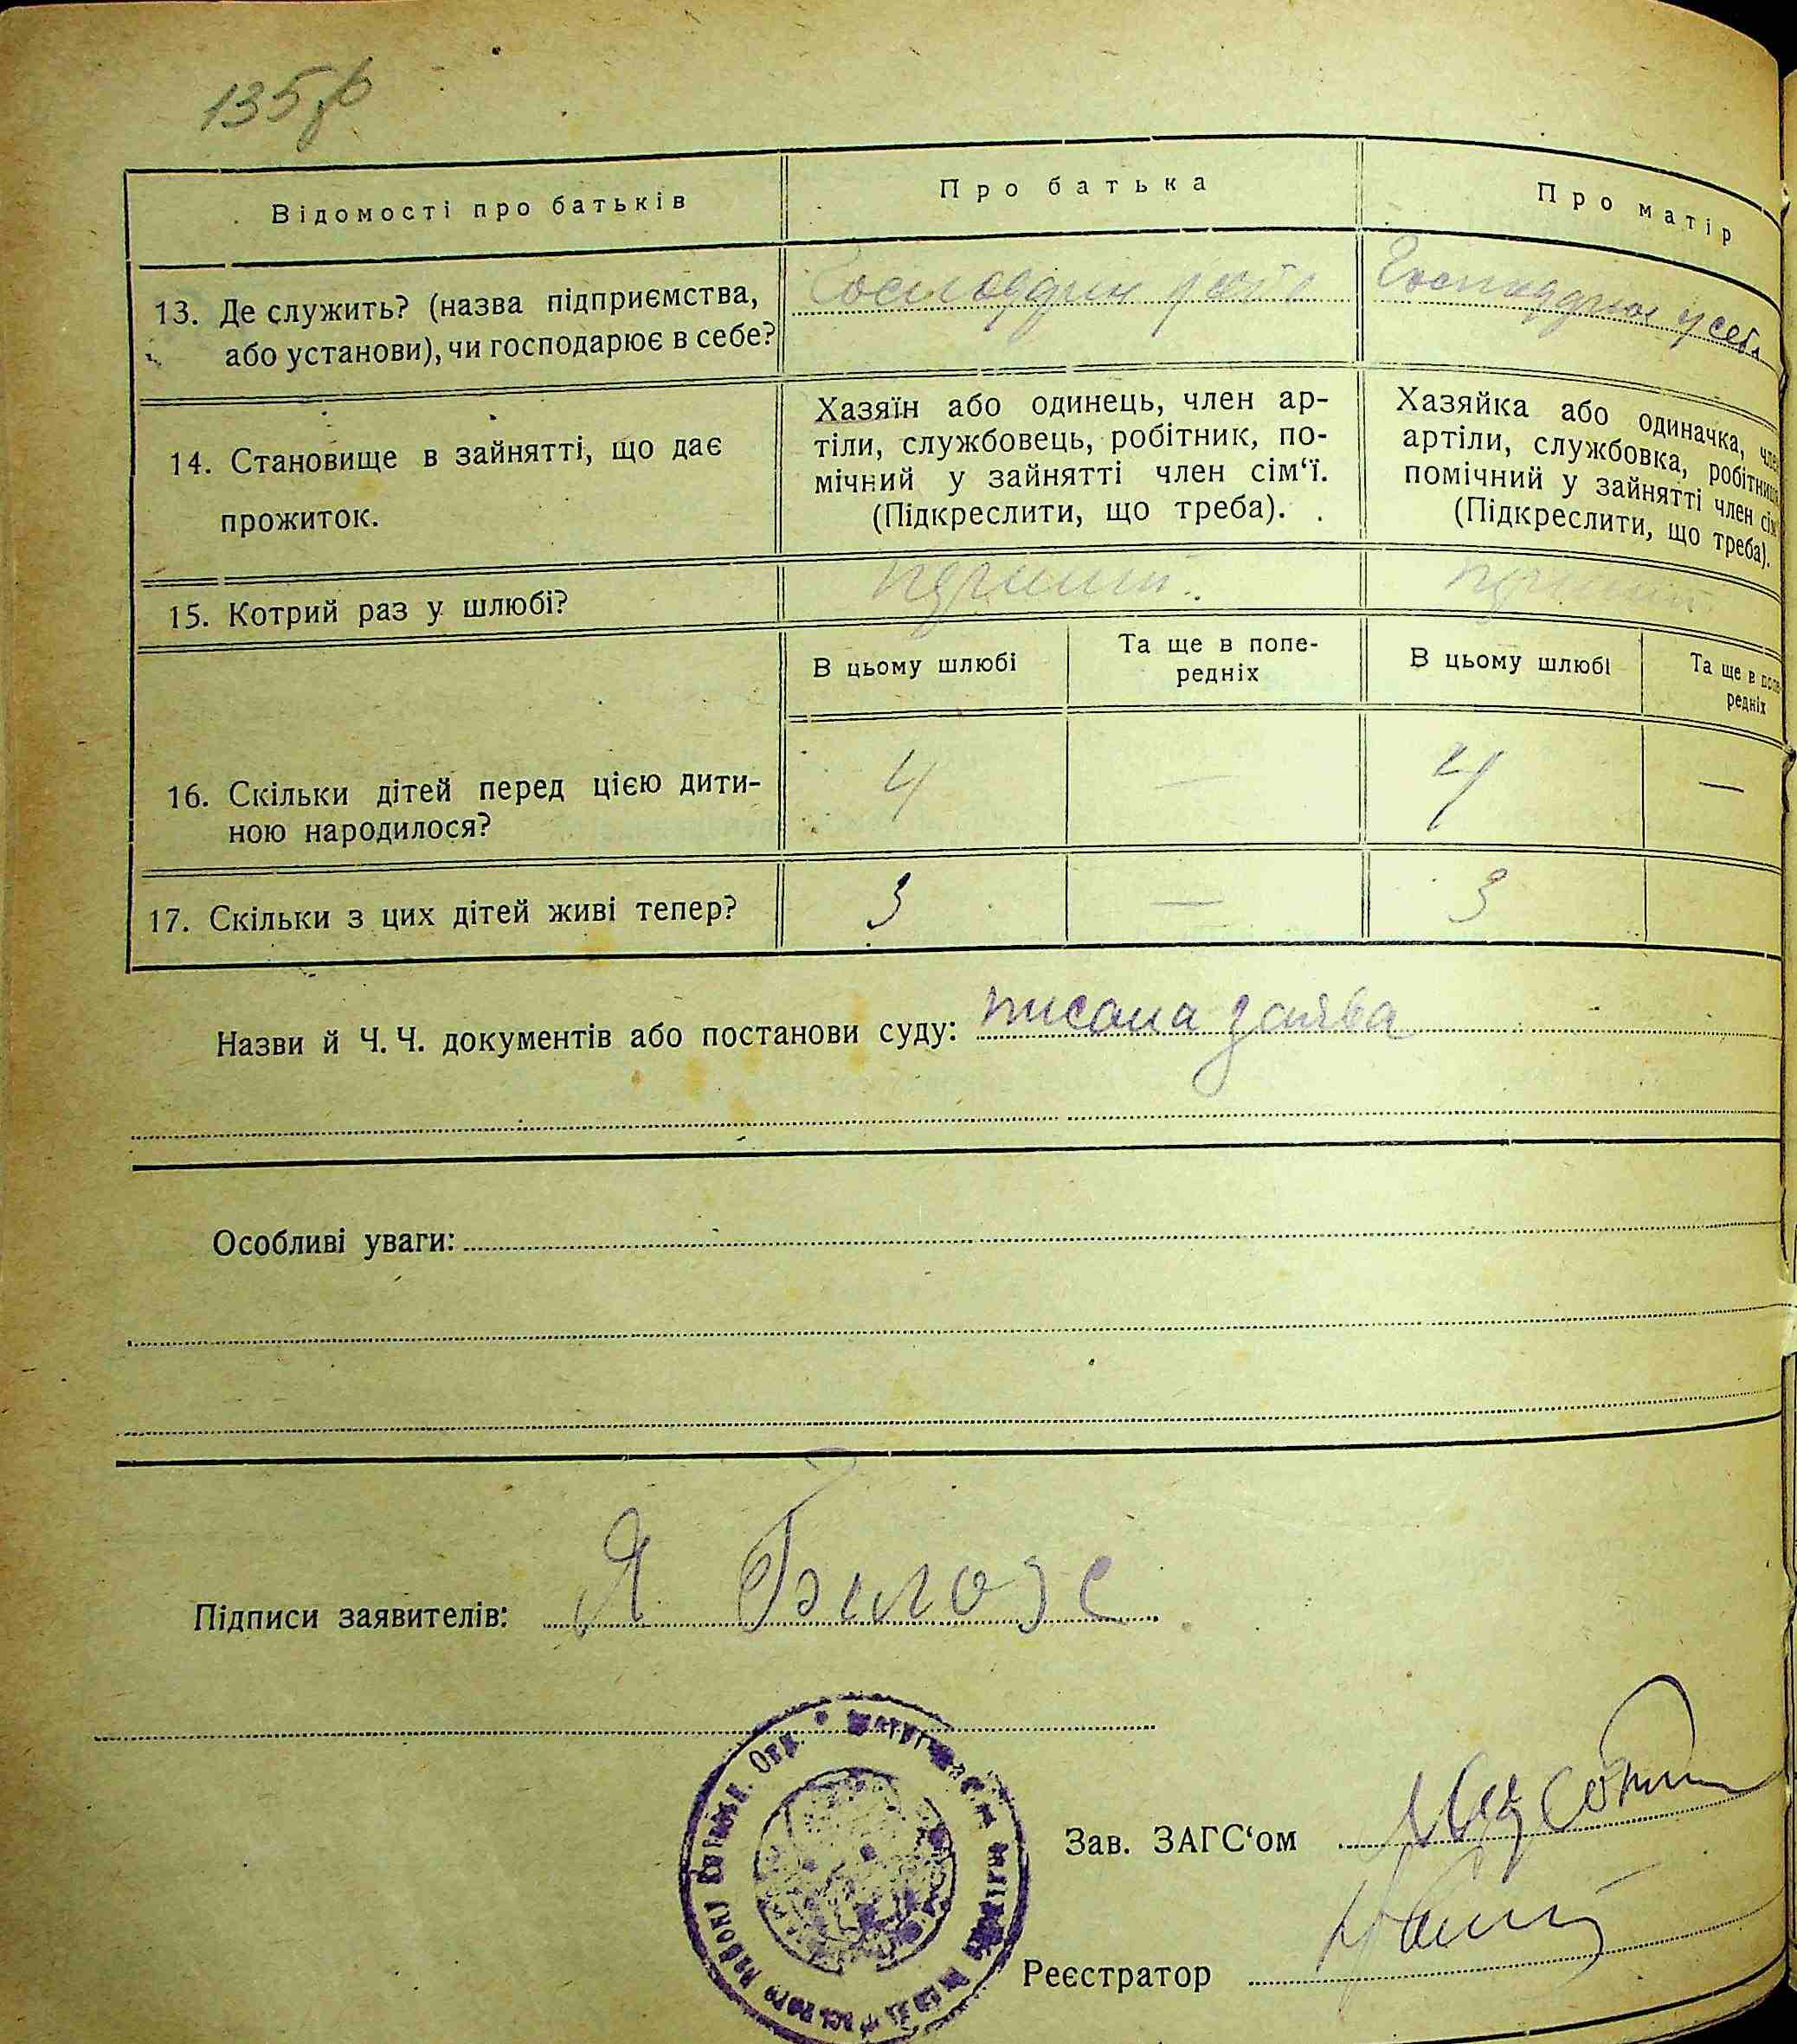 135
Відомості про батьків
Про батька
Про матір
13. Де служить? (назва підприємства,
або установи), чи господарює в себе?
у себе
14. Становище в зайнятті, що дає
прожиток.
Хазяїн або одинець, член ар-
тіли, службовець, робітник, по-
мічний у зайнятті член сім‘ї.
(Підкреслити, що треба).
Хазяйка або одиначка, член
артіли, службовка, робітниця
помічний у зайнятті член сім
(Підкреслити, що треба).
15. Котрий раз у шлюбі?
В цьому шлюбі
Та ще в попе-
редніх
В цьому шлюбі
Та ще в попе-
редніх
16. Скільки дітей перед цією дити-
ною народилося?
4 — 4 —
17. Скільки з цих дітей живі тепер?
3 — 3
Назви й Ч. Ч. документів або постанови суду: писана заява
Особливі уваги:
Підписи заявителів: Я
Зав. ЗАГС‘ом
Реєстратор